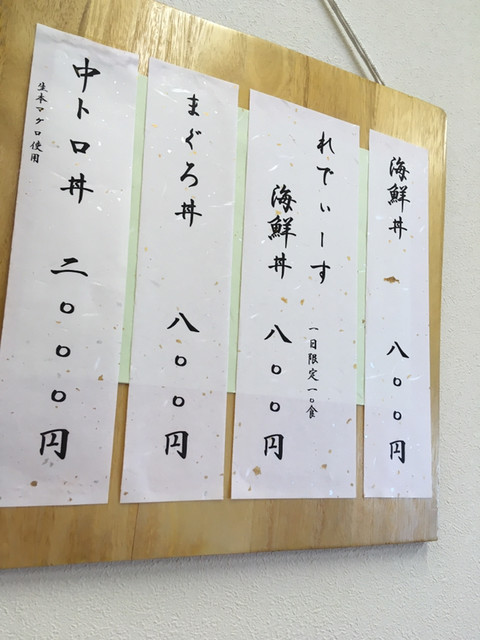 海鮮丼 八〇〇円
れでぃーす
海鮮丼 八〇〇円
一日限定一〇食
まぐろ丼 八〇〇円
中トロ丼 二〇〇〇円
生本マグロ使用